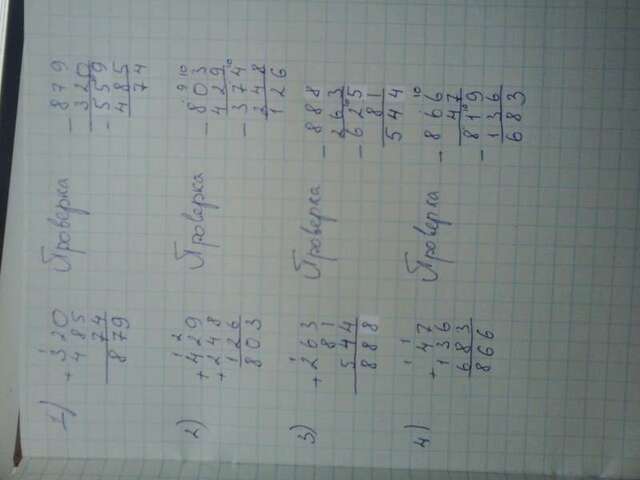 1)
1
+ 320
485
74
879
Проверка
- 879
320
- 559
485
74
2)
1 2
+ 429
+ 248
126
803
Проверка
9 10
- 803
429
10
- 374
248
126
3)
1
+ 263
81
544
888
Проверка
- 888
263
- 625
81
544
4)
1 1
+ 47
136
683
866
Проверка
10
- 866
47
10
- 819
136
683